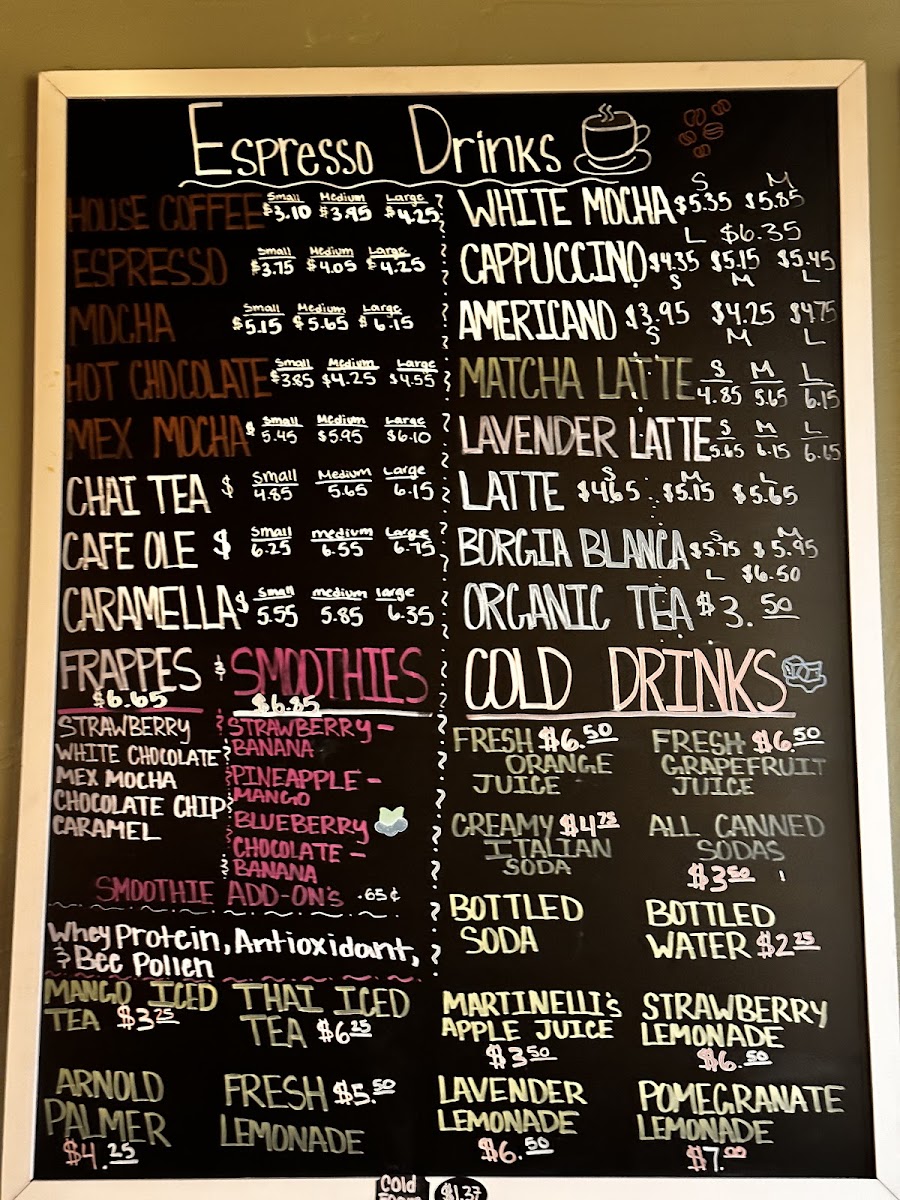 Espresso Drinks
HOUSE COFFEE Small $3.10 Medium $3.95 Large $4.25
ESPRESSO Small $3.75 Medium $4.05 Large $4.25
MOCHA Small $5.15 Medium $5.65 Large $6.15
HOT CHOCOLATE Small $3.85 Medium $4.25 Large $4.55
MEX MOCHA $ Small 5.45 Medium $5.95 Large $6.10
CHAI TEA $ Small 4.85 Medium 5.65 Large 6.15
CAFE OLE $ Small 6.25 medium 6.55 Large 6.75
CARAMELLA $ Small 5.55 medium 5.85 large 6.35
WHITE MOCHA S $5.35 M $5.85
L $6.35
CAPPUCCINO $4.35 S $5.15 M $5.45 L
AMERICANO $3.95 S $4.25 M $4.75 L
MATCHA LATTE S 4.85 M 5.65 L 6.15
LAVENDER LATTE S 5.65 M 6.15 L 6.65
LATTE S $4.65 M $5.15 L $5.65
BORGIA BLANCA S $5.75 M $5.95
L $6.50
ORGANIC TEA $3.50
FRAPPES & SMOOTHIES
$6.65 $6.85
STRAWBERRY
WHITE CHOCOLATE
MEX MOCHA
CHOCOLATE CHIP
CARAMEL
STRAWBERRY -
BANANA
PINEAPPLE -
MANGO
BLUEBERRY
CHOCOLATE -
BANANA
SMOOTHIE ADD-ON's .65¢
Whey Protein, Antioxidant,
& Bee Pollen
COLD DRINKS
FRESH $6.50
ORANGE
JUICE
FRESH $6.50
GRAPEFRUIT
JUICE
CREAMY $4.75
ITALIAN
SODA
ALL CANNED
SODAS
$3.50
BOTTLED
SODA
BOTTLED
WATER $2.25
MANGO ICED
TEA $3.25
THAI ICED
TEA $6.25
MARTINELLI's
APPLE JUICE
$3.50
STRAWBERRY
LEMONADE
$6.50
ARNOLD
PALMER
$4.25
FRESH $5.50
LEMONADE
LAVENDER
LEMONADE
$6.50
POMEGRANATE
LEMONADE
$7.00
Cold
Foam $1.37